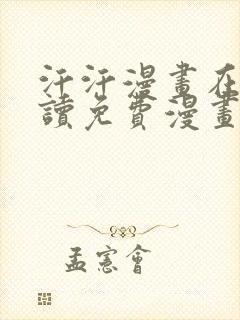 汗汗漫畫在
讀免費漫畫
孟憲會